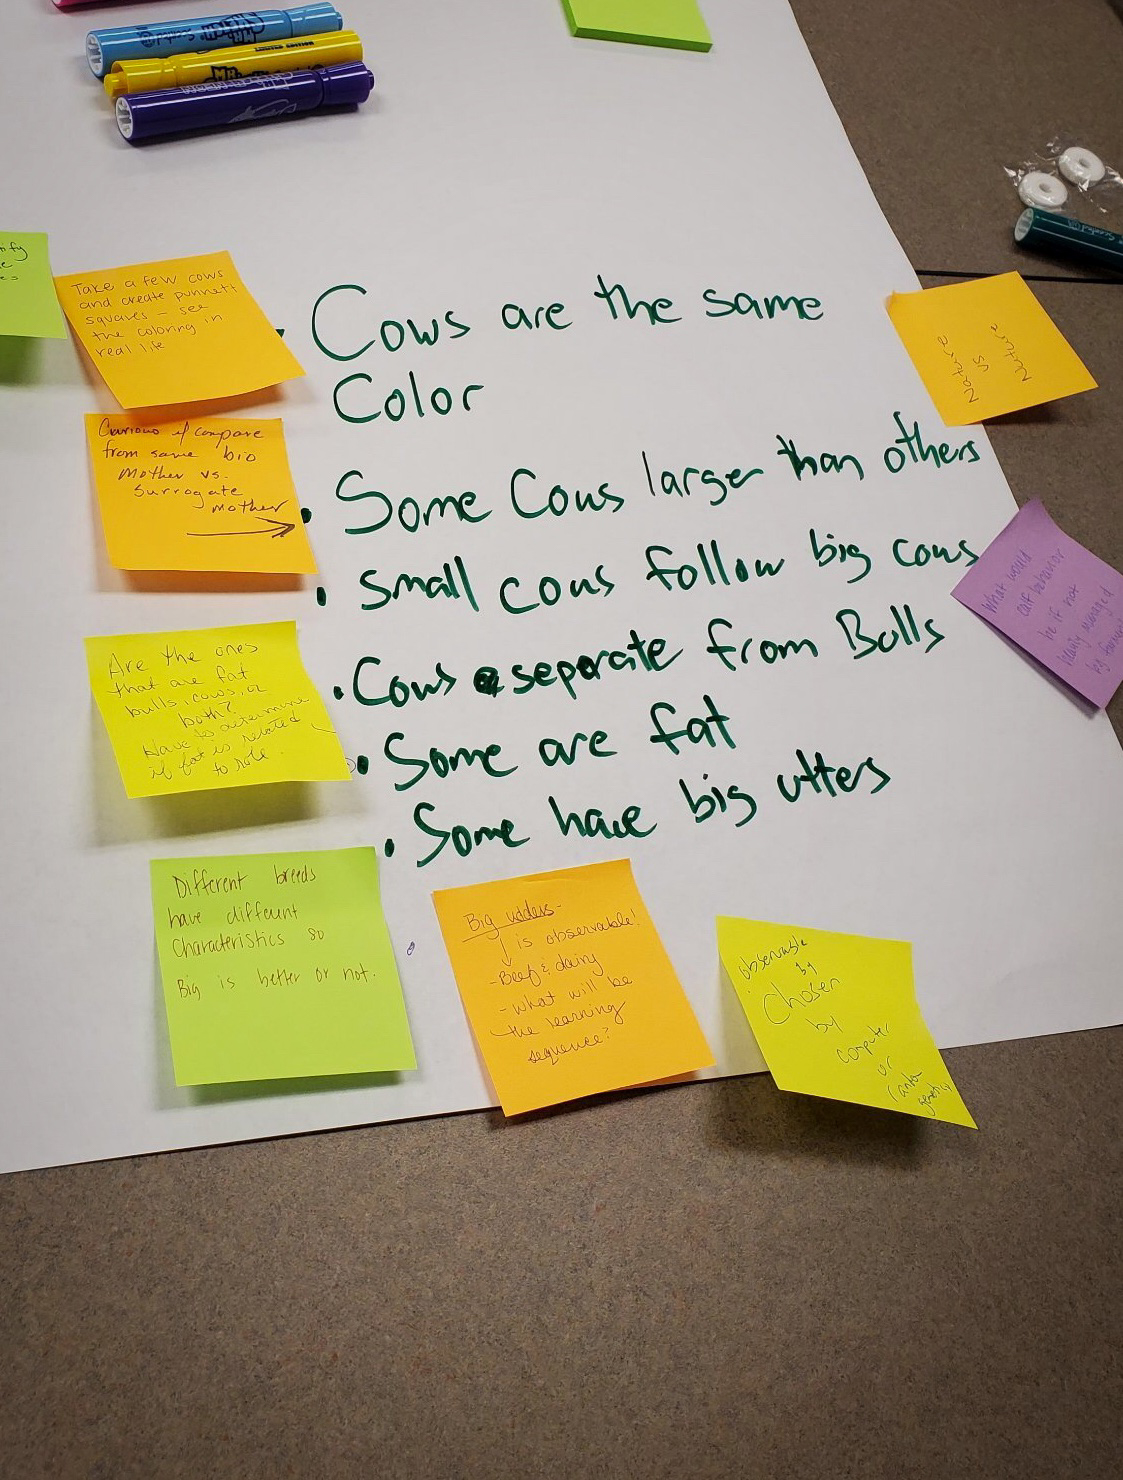 Take a few cows
and create punnett
squares - see
the coloring in
real life
Curious if compare
from same bio
Mother vs.
Surrogate
mother
Are the ones
that are fat
bulls, cows, or
both?
Have to determine
if fat is related
to role.
• Cows are the same
Color
• Some Cows larger than others
• Small cows follow big cows
• Cows separate from Bulls
• Some are fat
• Some have big utters
Nature
vs
Nurture
What would
calf behavior
be if not
managed
by
Different breeds
have different
Characteristics so
Big is better or not.
Big udders-
is observable!
-Beef & dairy
- what will be
the learning
sequence?
observable
by
Chosen
by
computer
or
genetics